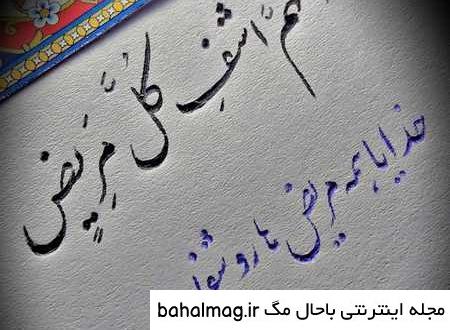 اشفِ کُلَّ مَریضٍ
خدایا همه مریض ها رو شفا
مجله اینترنتی باحال مگ bahalmag.ir